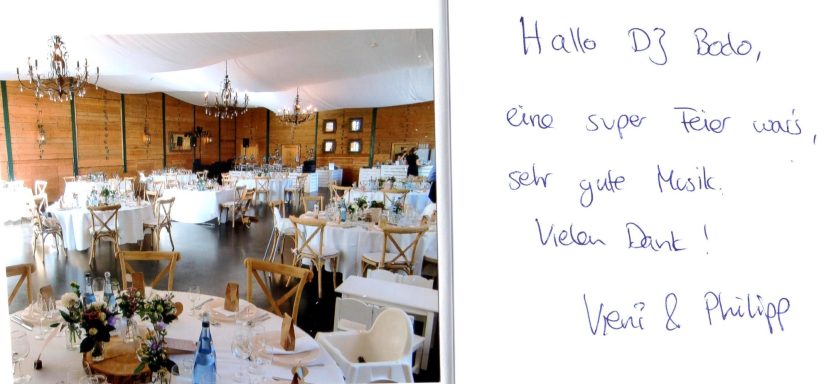 Hallo DJ Bodo,
eine super Feier war's,
sehr gute Musik.
Vielen Dank!
& Philipp